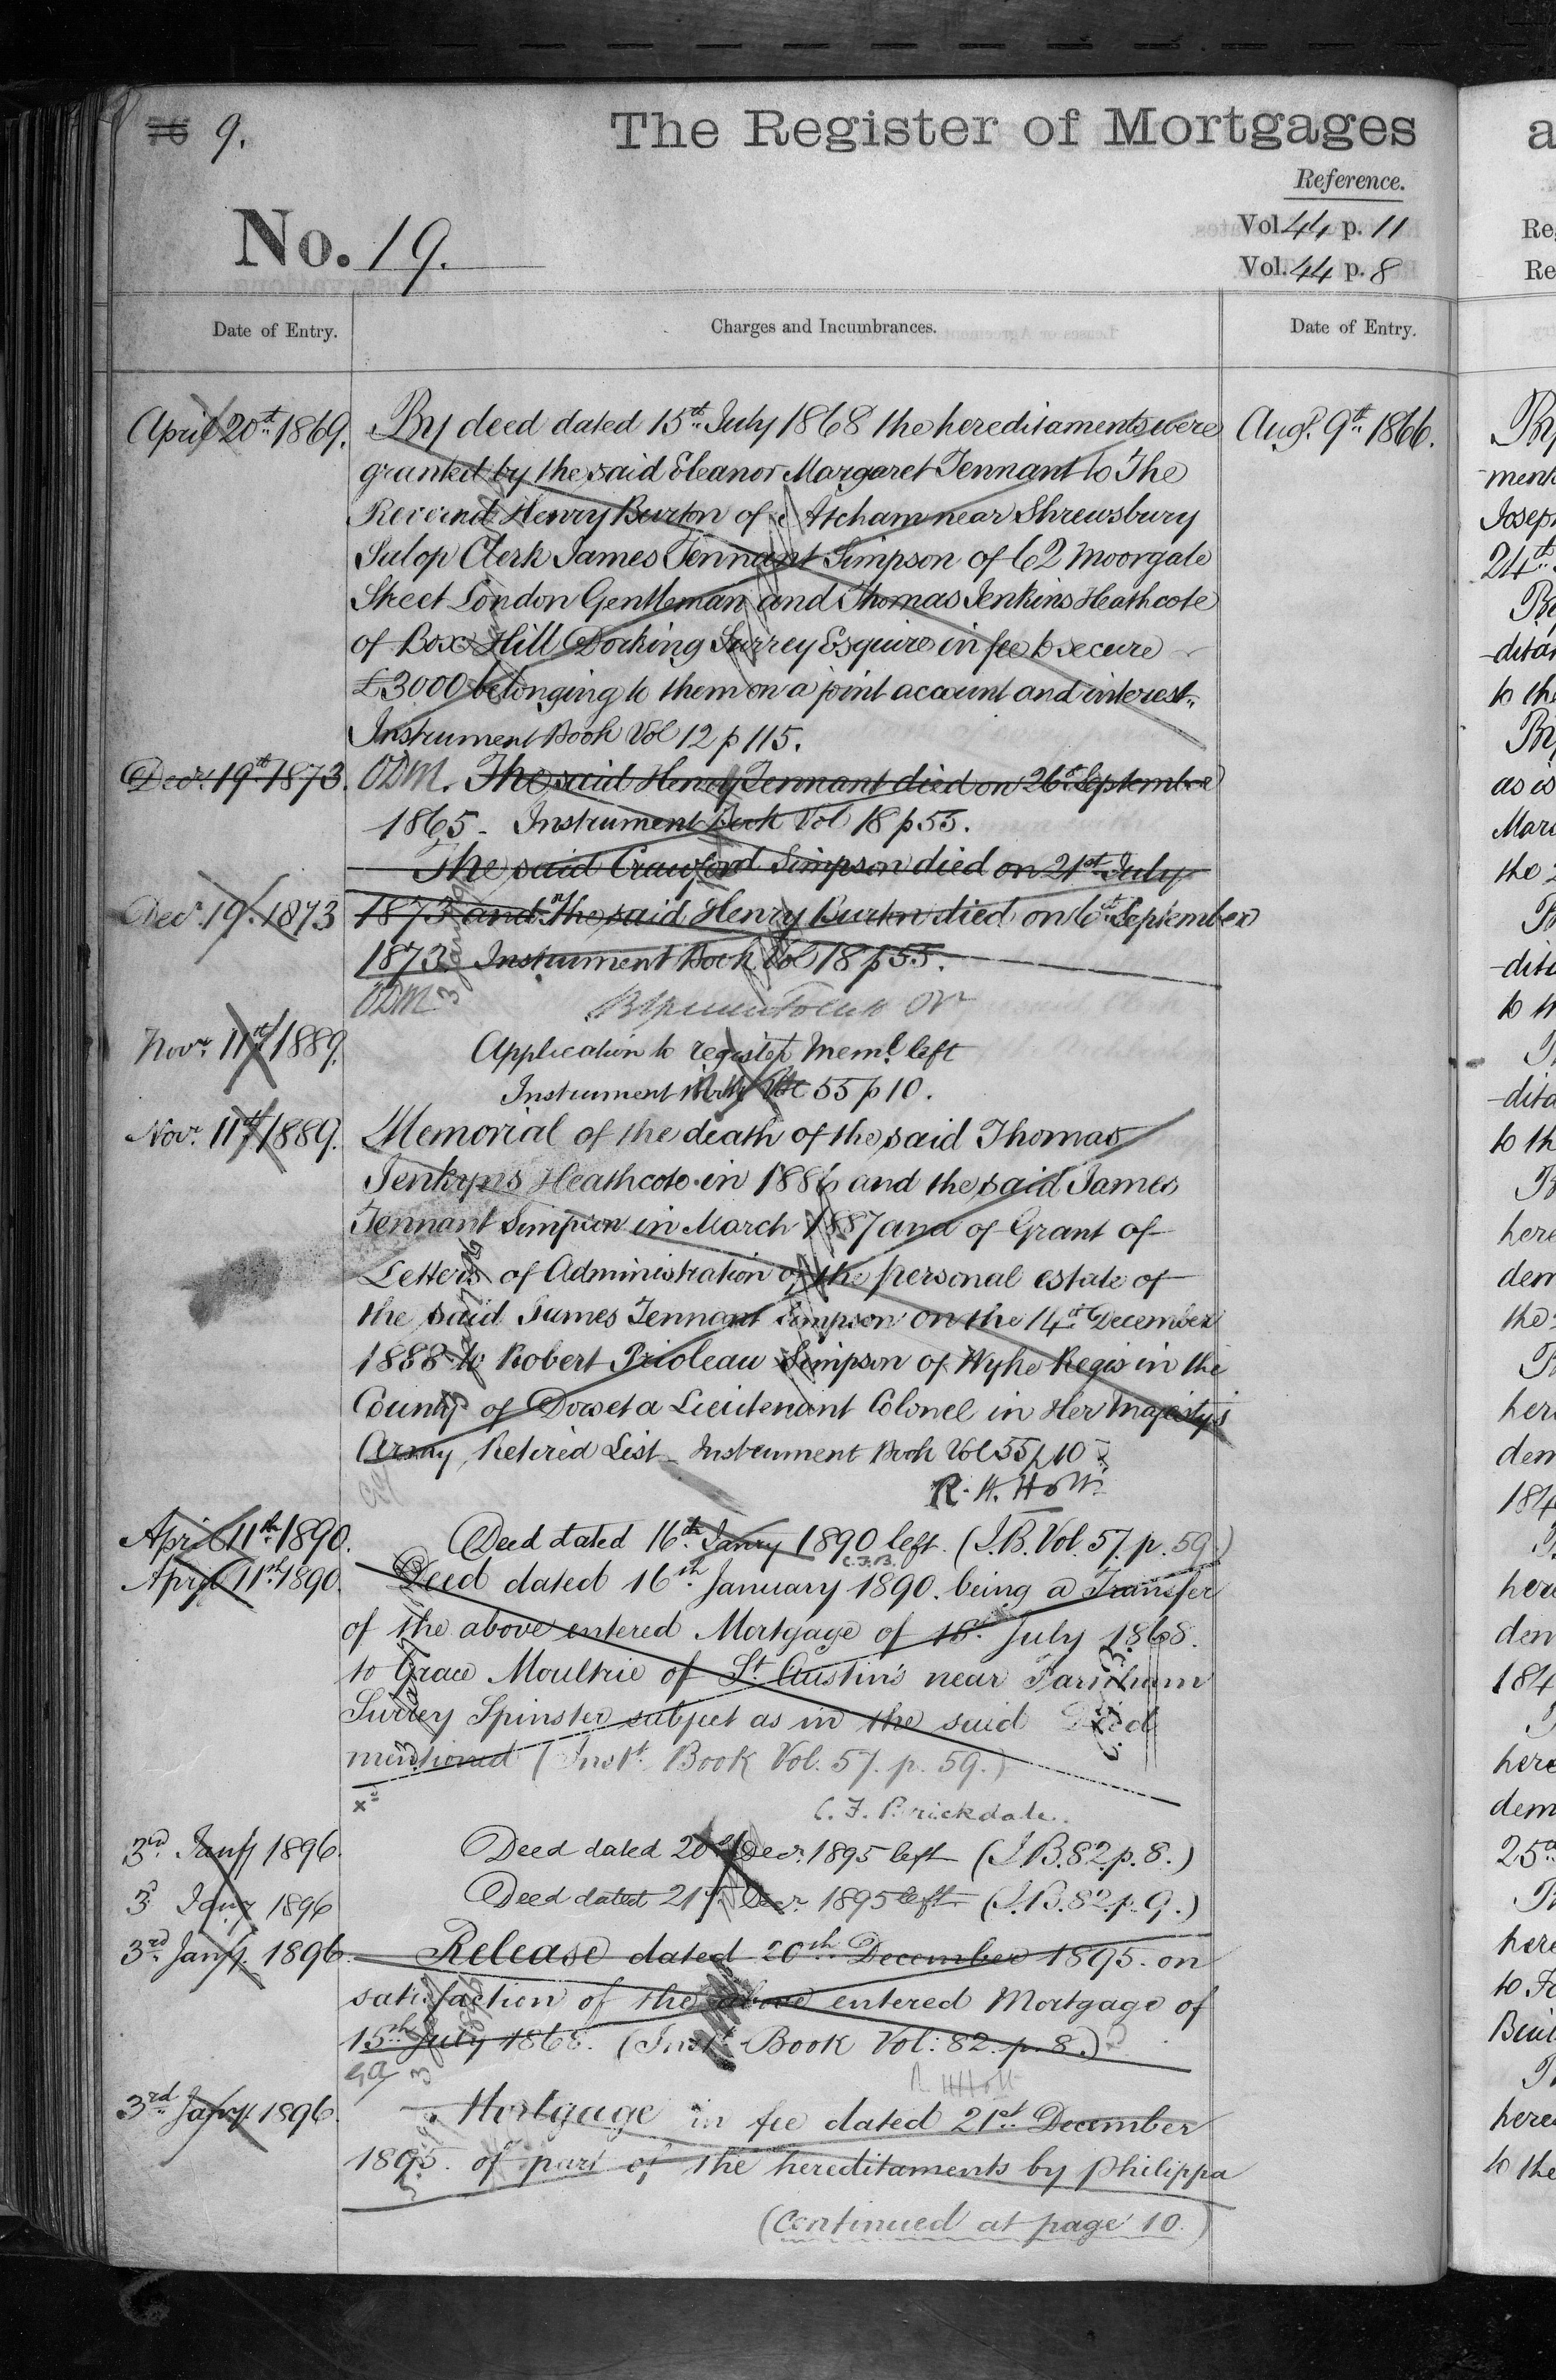 76 9.
The Register of Mortgages
Reference.
No. 19.
Vol. 44 p. 11
Vol. 44 p. 8
Date of Entry.
Charges and Incumbrances.
Date of Entry.
April 20th 1869.
By deed dated 15th July 1868 the hereditaments were
Augt. 9th 1866.
granted by the said Eleanor Margaret Tennant to The
Reverend Henry Burton of Atcham near Shrewsbury
Salop Clerk James Tennant Simpson of 62 Moorgate
Street London Gentleman and Thomas Jenkins Heathcote
of Box Hill Dorking Surrey Esquire in fee to secure
£3000 belonging to them on a joint account and interest.
Instrument Book Vol 12 p 115.
Decr. 19th 1873.
ODM. The said Henry Tennant died on 26th September
1865 - Instrument Book Vol 18 p 55.
The said Crawford Simpson died on 21st July
Decr. 19. 1873
1873 and the said Henry Burton died on 6th September
1873 Instrument Book Vol 18 p 55.
ODM
Novr. 11th 1889.
Application to register Meml. left
Instrument Book Vol 55 p 10.
Novr. 11th 1889.
Memorial of the death of the said Thomas
Jenkyns Heathcote in 1886 and the said James
Tennant Simpson in March 1887 and of Grant of
Letters of Administration of the personal estate of
the said James Tennant Simpson on the 14th December
1888 to Robert Prioleau Simpson of Wyke Regis in the
County of Dorset a Lieutenant Colonel in Her Majesty's
Army, Retired List - Instrument Book Vol 55 p 10
R. H. Holt
April 11th 1890.
Deed dated 16th Janry 1890 left. (I.B. Vol. 57. p. 59.)
C.F.B.
April 11th 1890.
Deed dated 16th January 1890. being a Transfer
of the above entered Mortgage of 15th July 1868.
to Grace Moultrie of St. Austin's near Farnham
Surrey Spinster subject as in the said Deed
mentioned (Inst. Book Vol. 57. p. 59.)
C. F. Brickdale.
3rd Jany 1896.
Deed dated 20th Decr. 1895 left (I.B. 82. p. 8.)
3 Jany 1896
Deed dated 21st Decr. 1895 left (I.B. 82. p. 9.)
3rd Jany. 1896
Release dated 20th December 1895. on
satisfaction of the above entered Mortgage of
15th July 1868. (Inst. Book Vol: 82. p. 8.)
R H Holt
3rd Jany. 1896.
Mortgage in fee dated 21st December
1895. of part of the hereditaments by Philippa
(Continued at page 10.)